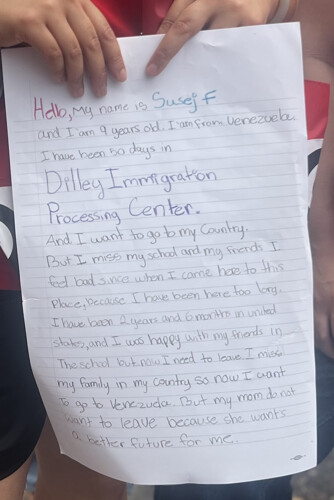 Hello, My name is Susej F
and I am 9 years old. I am from Venezuela.
I have been 50 days in
Dilley Immigration
Processing Center.
And I want to go to my Country.
But I miss my school and my friends I
feel bad since when I came here to this
Place, because I have been here too long.
I have been 2 years and 6 months in united
states, and I was happy with my friends in
The school but now I need to leave. I miss
my family in my country so now I want
To go to Venezuela. But my mom do not
want to leave because she wants
a better future for me.